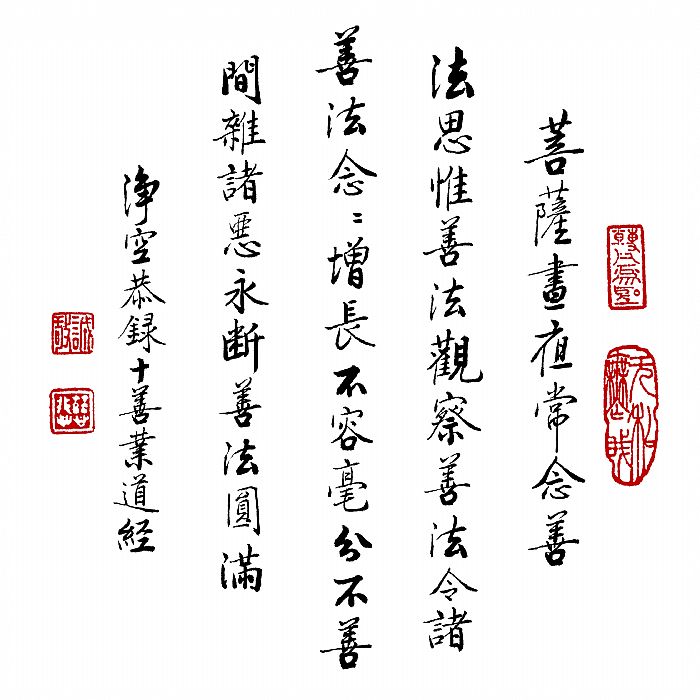 菩薩晝夜常念善
法思惟善法觀察善法令諸
善法念〻增長不容毫分不善
間雜諸惡永斷善法圓滿
淨空恭録十善業道經